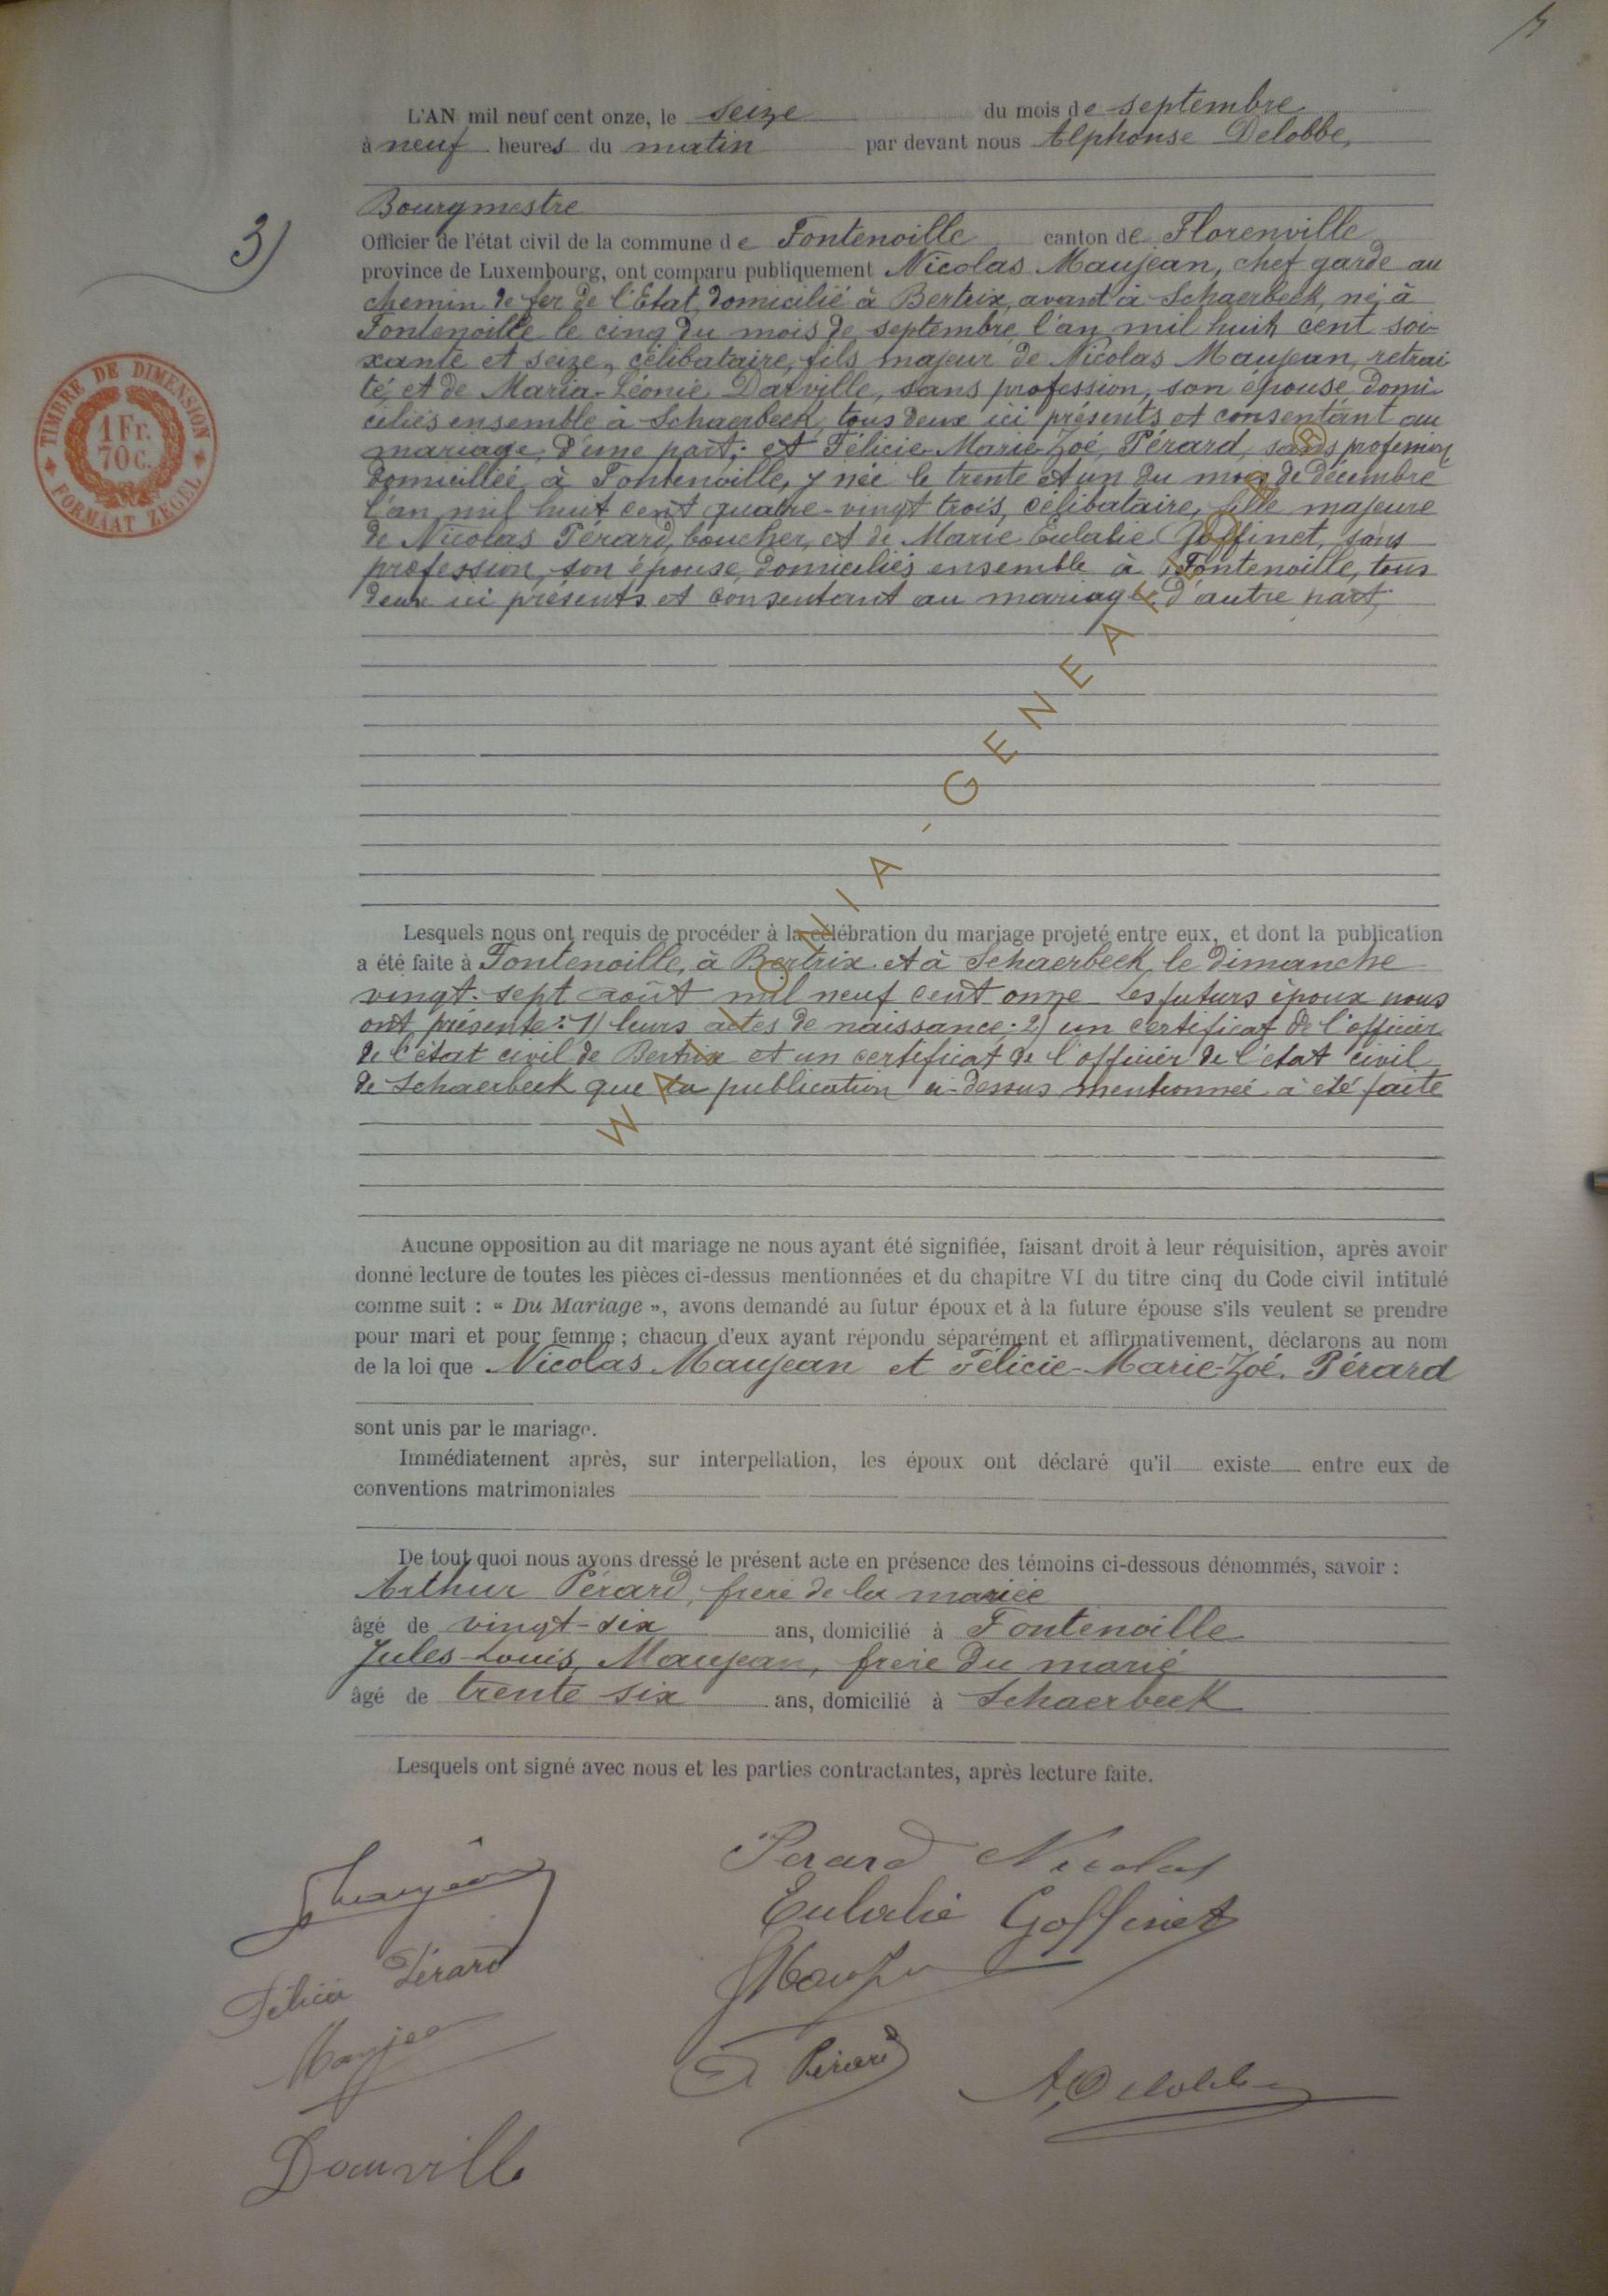 L'AN mil neuf cent onze, le seize du mois de septembre
à neuf heures du matin par devant nous Alphonse Delobbe,
Bourgmestre
3)
Officier de l'état civil de la commune de Fontenoille canton de Florenville
province de Luxembourg, ont comparu publiquement Nicolas Maujean, chef garde au
chemin de fer de l'Etat, domicilié à Bertrix, avant à Schaerbeek, né à
Fontenoille le cinq du mois de septembre l'an mil huit cent soi-
xante et seize, célibataire, fils majeur de Nicolas Maujean, retrai
té, et de Maria-Léonie Darville, sans profession, son épouse domi-
ciliés ensemble à Schaerbeek, tous deux ici présents et consentant au
mariage, d'une part; et Félicie-Marie-Zoé Pérard, sans profession
domiciliée à Fontenoille, y née le trente et un du mois de décembre
l'an mil huit cent quatre-vingt trois, célibataire, fille majeure
de Nicolas Pérard, boucher, et de Marie Eulalie Goffinet, sans
profession, son épouse, domiciliés ensemble à Fontenoille, tous
deux ici présents et consentant au mariage, d'autre part,
TIMBRE DE DIMENSION
1 Fr.
70 c.
FORMAAT ZEGEL
Lesquels nous ont requis de procéder à la célébration du mariage projeté entre eux, et dont la publication
a été faite à Fontenoille, à Bertrix et à Schaerbeek, le dimanche
vingt-sept août mil neuf cent onze Les futurs époux nous
ont présenté: 1) leurs actes de naissance; 2) un certificat de l'officier
de l'état civil de Bertrix et un certificat de l'officier de l'état civil
de Schaerbeek que la publication ci-dessus mentionnée a été faite
WALLONIA-GENEAFTER ®
Aucune opposition au dit mariage ne nous ayant été signifiée, faisant droit à leur réquisition, après avoir
donné lecture de toutes les pièces ci-dessus mentionnées et du chapitre VI du titre cinq du Code civil intitulé
comme suit : « Du Mariage », avons demandé au futur époux et à la future épouse s'ils veulent se prendre
pour mari et pour femme ; chacun d'eux ayant répondu séparément et affirmativement, déclarons au nom
de la loi que Nicolas Maujean et Félicie-Marie-Zoé Pérard
sont unis par le mariage.
Immédiatement après, sur interpellation, les époux ont déclaré qu'il existe entre eux de
conventions matrimoniales
De tout quoi nous avons dressé le présent acte en présence des témoins ci-dessous dénommés, savoir :
Arthur Pérard, frère de la mariée
âgé de vingt-six ans, domicilié à Fontenoille
Jules-Louis Maujean, frère du marié
âgé de trente six ans, domicilié à Schaerbeek
Lesquels ont signé avec nous et les parties contractantes, après lecture faite.
Maujean
Perard Nicolas
Eulalie Goffinet
Félicie Pérard
Maujean
Pérard
A, Delobbe
Darville